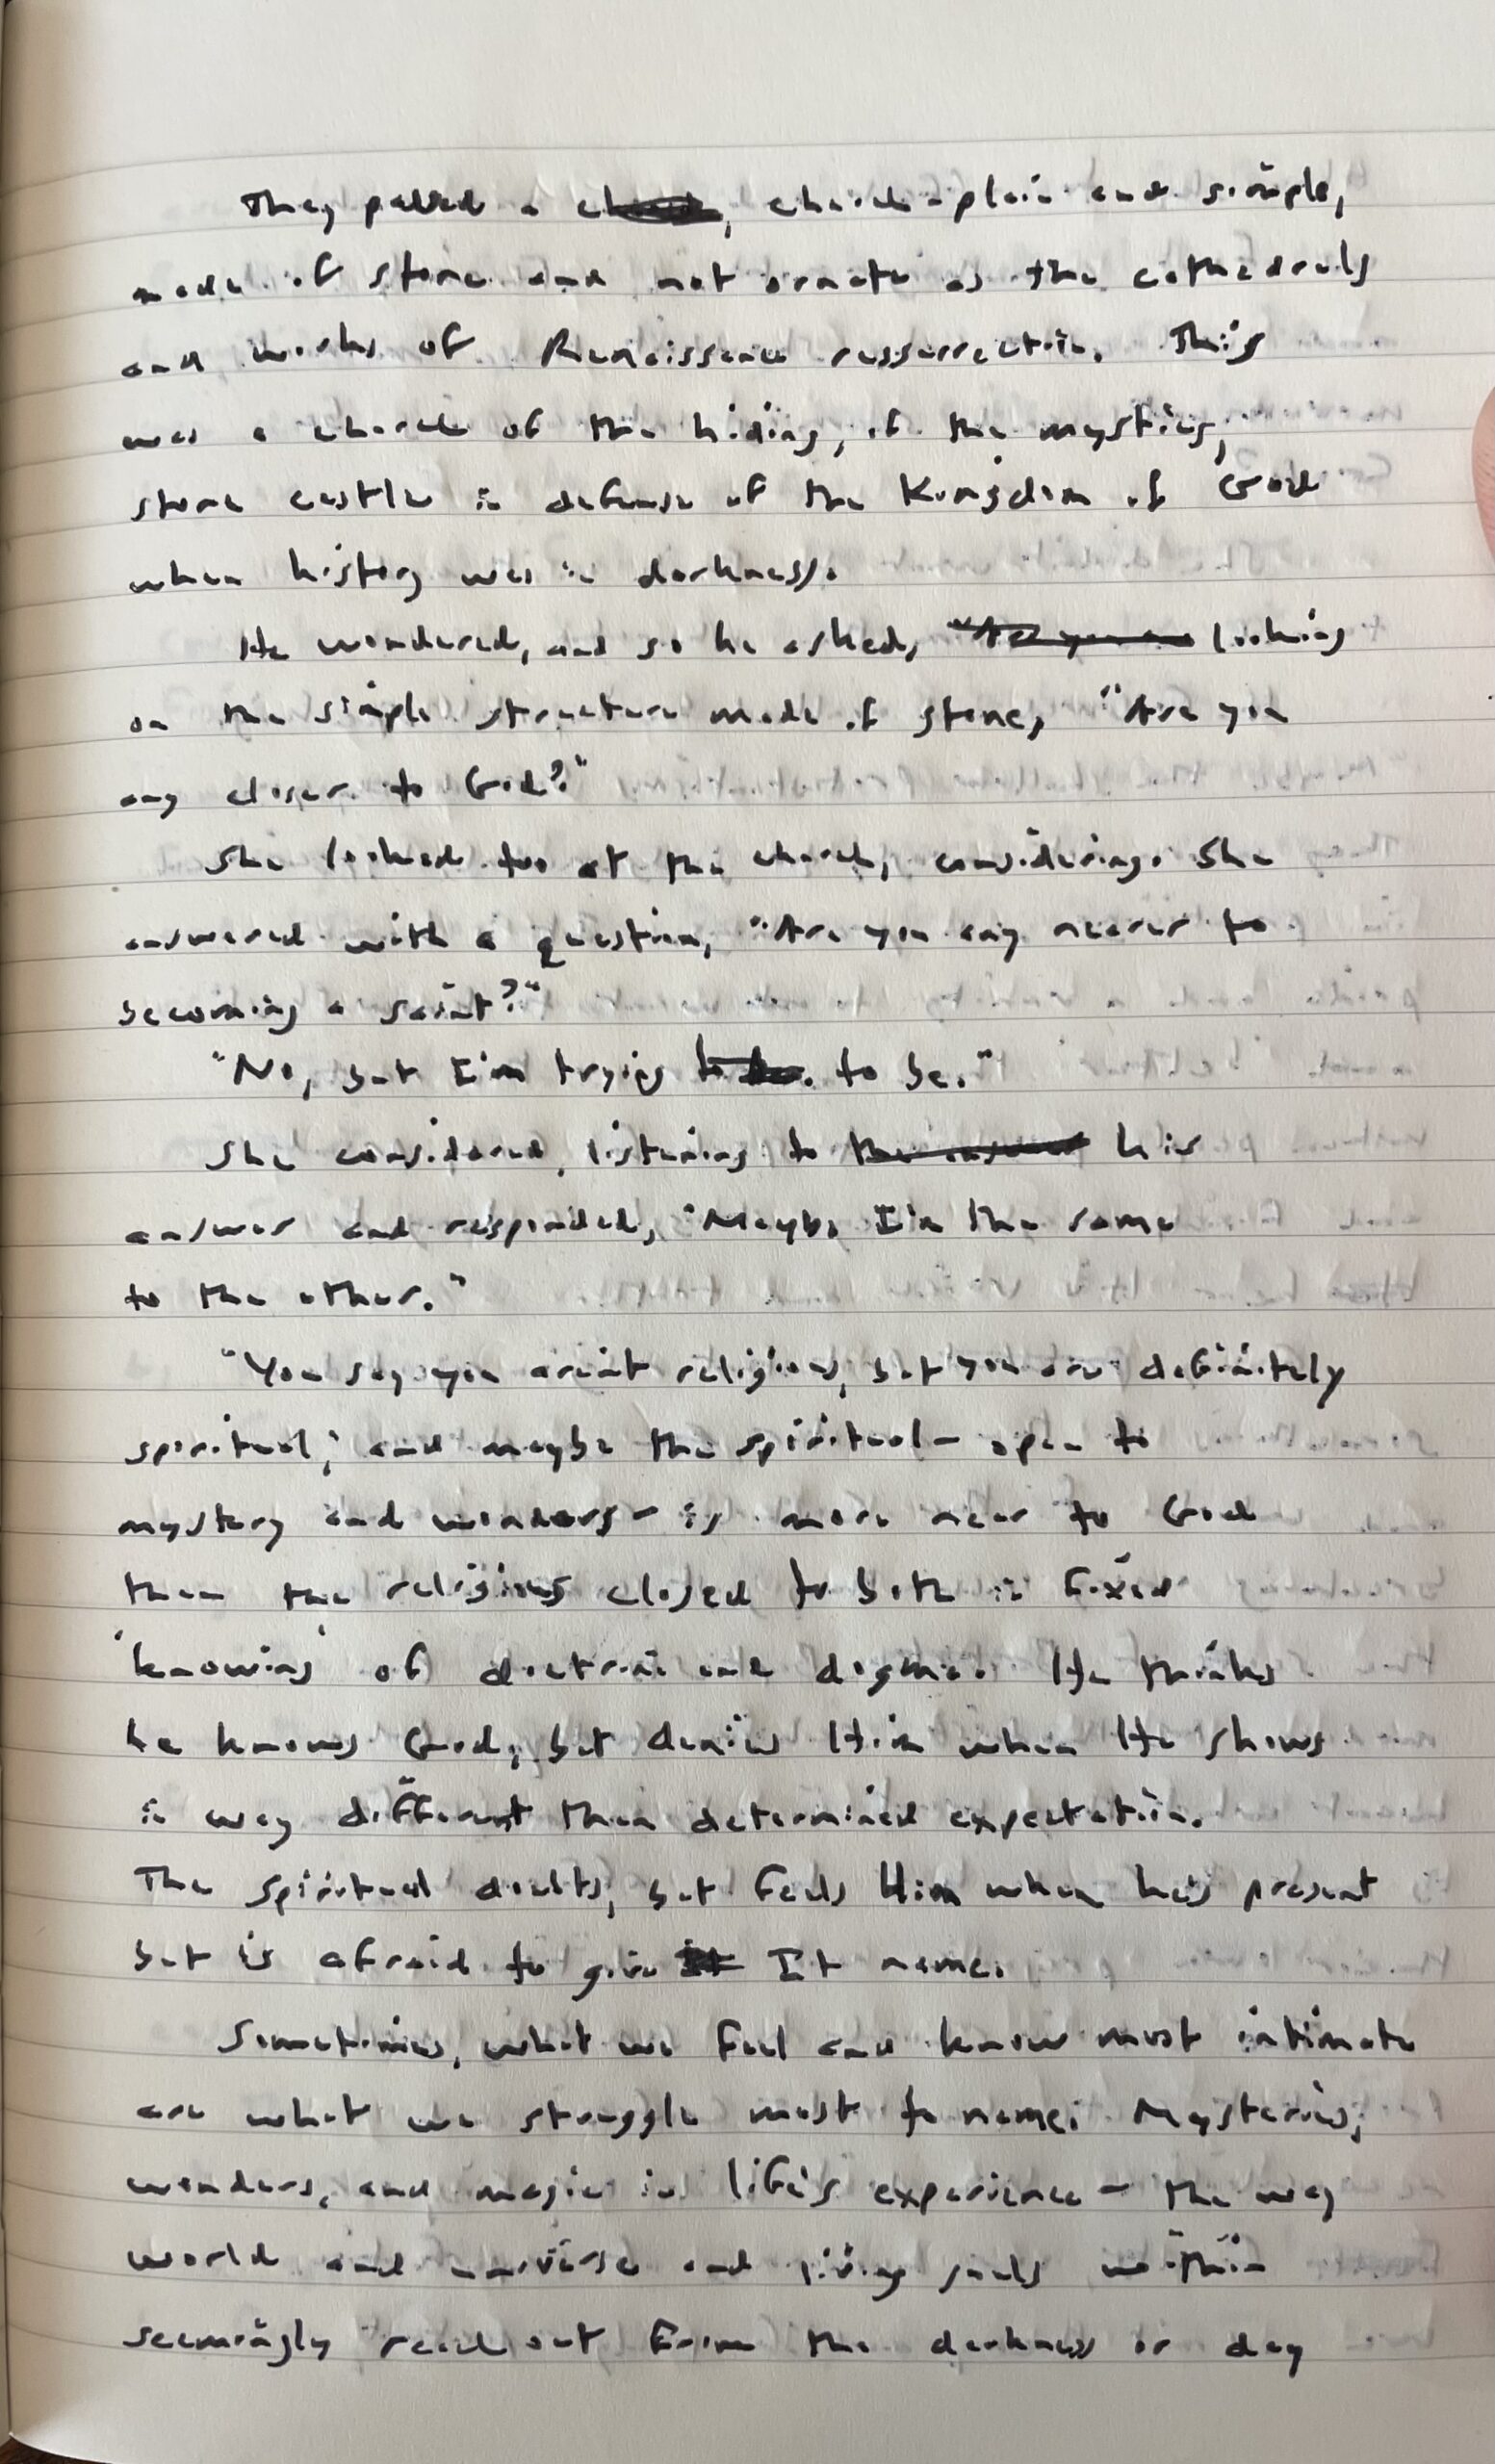 They passed a church - plain and simple,
made of stone and not ornate as the cathedrals
and works of Renaissance ressurrection. This
was a church of the hiding, of the mystics,
stone castle in defense of the Kingdom of God
when history was in darkness.
He wondered, and so he asked, looking
on the simple structure made of stone, "Are you
any closer to God?"
She looked too at the church, considering. She
answered with a question, "Are you any nearer to
becoming a saint?"
"No, but I'm trying to be."
She considered, listening to his
answer and responded, "Maybe I'm the same
to the other."
"You say you aren't religious, but you are definitely
spiritual; and maybe the spiritual - open to
mystery and wonders - is more near to God
than the religious closed to both in fixed
'knowing' of doctrine and dogma. He thinks
he knows God, but denies Him when He shows
in way different than determined expectation.
The spiritual doubts, but feels Him when he's present
but is afraid to give It name.
Sometimes, what we feel and know most intimate
are what we struggle most to name: Mysteries,
wonders, and magic in life's experience - the way
world and universe and living souls within
seemingly reach out from the darkness or day